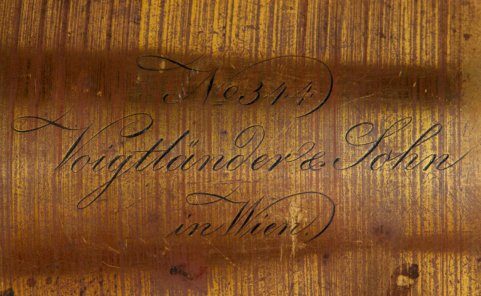 No 344
Voigtländer & Sohn
in Wien.